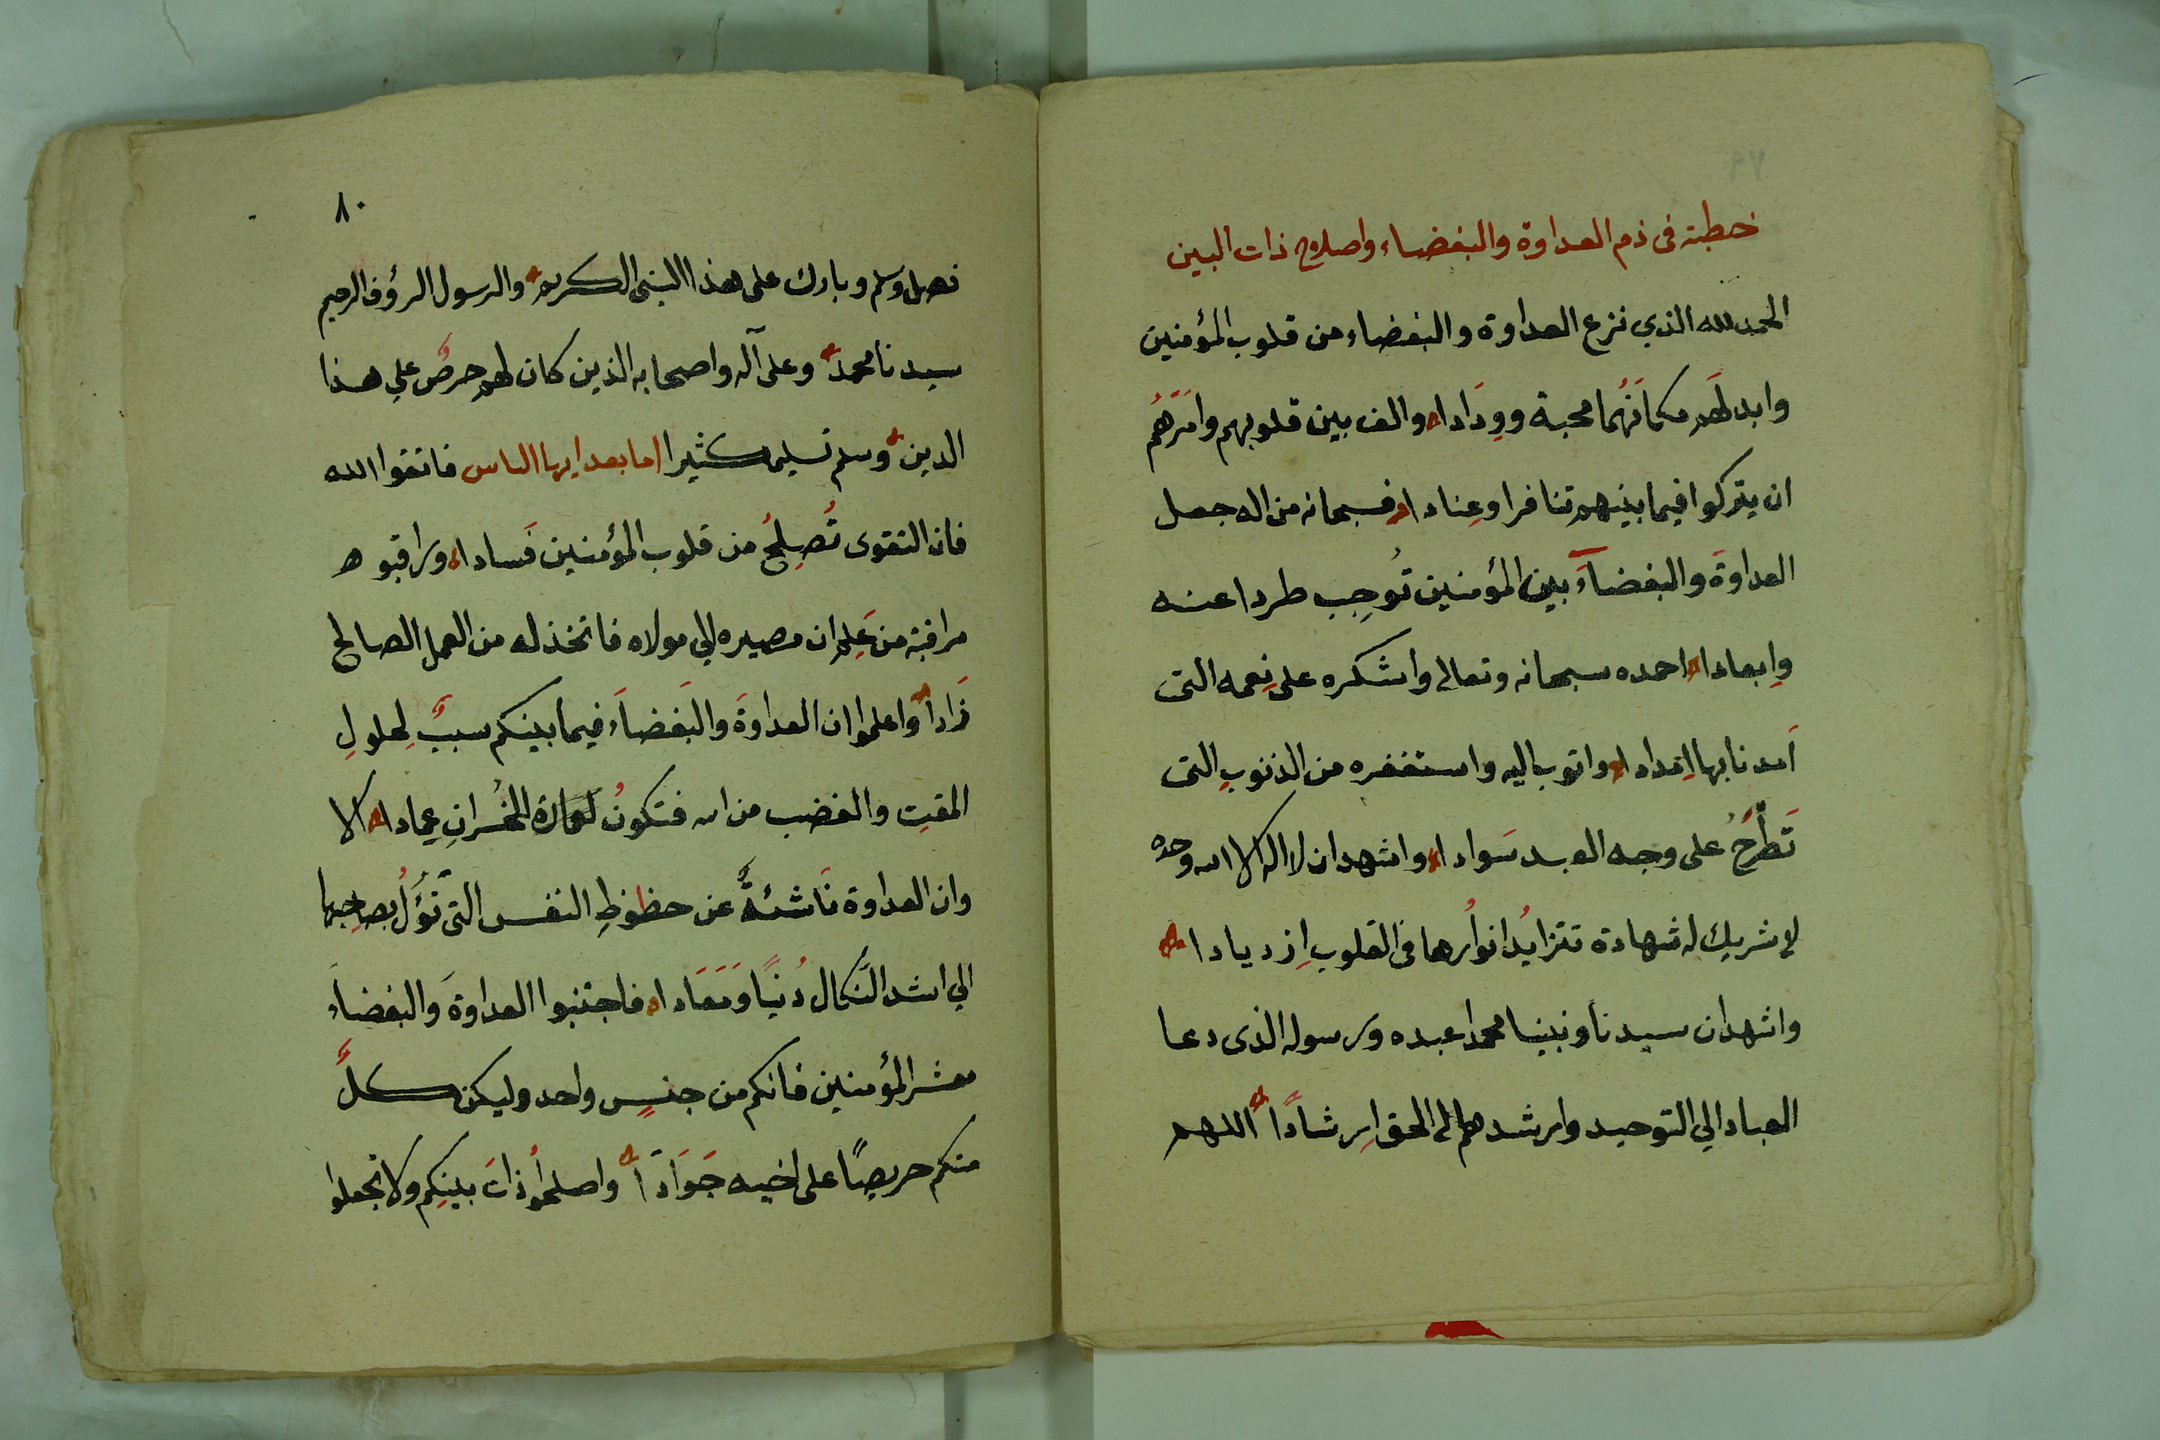 خطبة في ذم العداوة والبغضاء واصلاح ذات البين
الحمد لله الذي نزع العداوة والبغضاء من قلوب المؤمنين
وابدلهم مكانَهُما محبة ووِدَادا والف بين قلوبهم وامَرَهُم
ان يتركوا فيما بينهم تنافرا وعِنادا فسبحانه من اله جعل
العداوةَ والبغضآءَ بين المؤمنين تُوجِب طردا عنه
وإبعادا احمده سبحانه وتعالى واشكره على نِعمه التى
اَمدنا بها اِمدادا واتوب اليه واستغفره من الذنوبِ التى
تَطْرَحُ على وجه العبد سَوادا واشهد ان لا اله الا الله وحده
لا شريك له شهادة تتزايدُ انوارُها فى القلوبِ اِزديادا
واشهد ان سيدنا ونبينا محمدا عبده ورسوله الذى دعا
العباد الي التوحيد وارشدهم الى الحق اِرشادًا اللهم
٨٠
فصل وسلم وبارك على هذا النبى الكريم والرسول الرؤف الرحيم
سيدنا محمد وعلى آله واصحابه الذين كان لهم حرصٌ علي هذا
الدين وسلم تسليما كثيرا اما بعد ايها الناس فاتقوا الله
فان التقوى تُصِلحُ من قلوب المؤمنين فَسادا وراقبوه
مراقبة من عَلِم ان مصيره الي مولاه فاتخذ له من العمل الصالح
زَاداً واعلموا ان العداوةَ والبَغضاَء فيما بينكم سببٌ لِحلولِ
المقتِ والغضب من الله فتكونُ لعمارة الخُسرانِ عِمادا الا
وان العداوة نَاشئةٌ عن حظوظِ النفس التى تَؤُلُ بصاحِبها
الي اشد النَّكال دُنيًا ومَعَادا فاجتنبوا العداوةَ والبغضاءَ
معشر المؤمنين فانكم من جنسٍ واحد وليكن كلٌ
منكم حريصًا على اخيه جَوَادًا واصلحوا ذاتَ بينِكم ولا تجعلوا